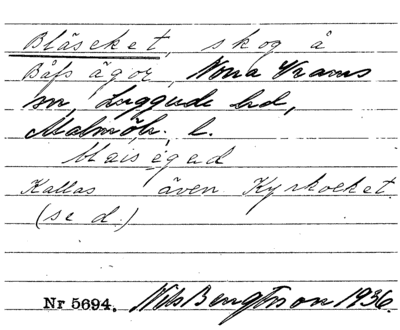 Bläseket, skog å
Båfs ägor, Norra Vrams
sn, Luggude hd,
Malmöh. l.
blaisəgəd
Kallas även Kyrkoeket
(se d.)
Nr 5694. Nils Bengtsson 1936.